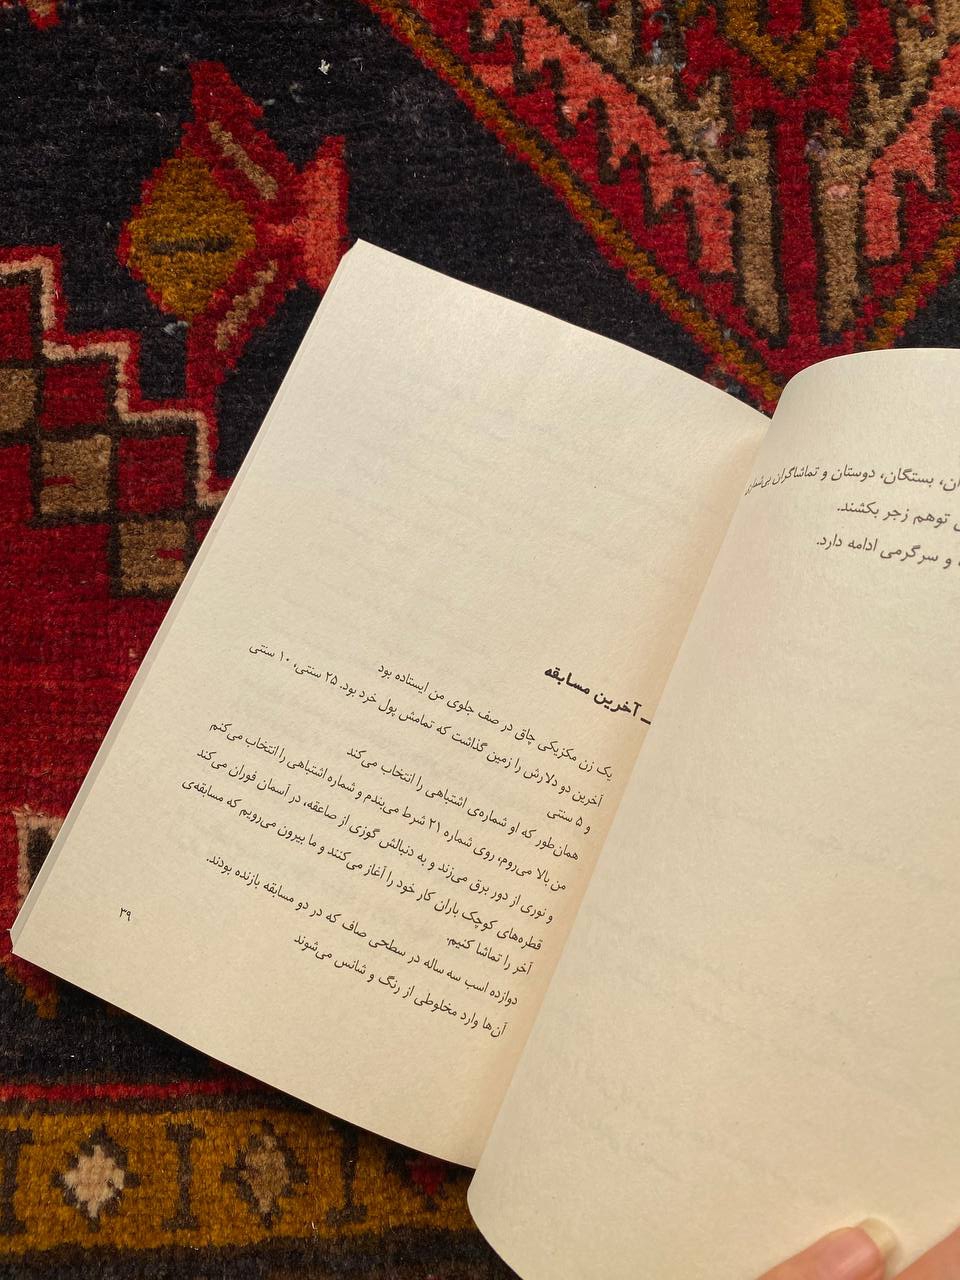 ان، بستگان، دوستان و تماشاگران
توهم زجر بکشند.
و سرگرمی ادامه دارد.
ـ آخرین مسابقه
یک زن مکزیکی چاق در صف جلوی من ایستاده بود
آخرین دو دلارش را زمین گذاشت که تمامش پول خرد بود. ۲۵ سنتی، ۱۰ سنتی
و ۵ سنتی
همان‌طور که او شماره‌ی اشتباهی را انتخاب می‌کند
من بالا می‌روم، روی شماره ۲۱ شرط می‌بندم و شماره اشتباهی را انتخاب می‌کنم
و نوری از دور برق می‌زند و به دنبالش گوزی از صاعقه، در آسمان فوران می‌کند
قطره‌های کوچک باران کار خود را آغاز می‌کنند و ما بیرون می‌رویم که مسابقه‌ی
آخر را تماشا کنیم.
دوازده اسب سه ساله در سطحی صاف که در دو مسابقه بازنده بودند.
آن‌ها وارد مخلوطی از رنگ و شانس می‌شوند
۳۹